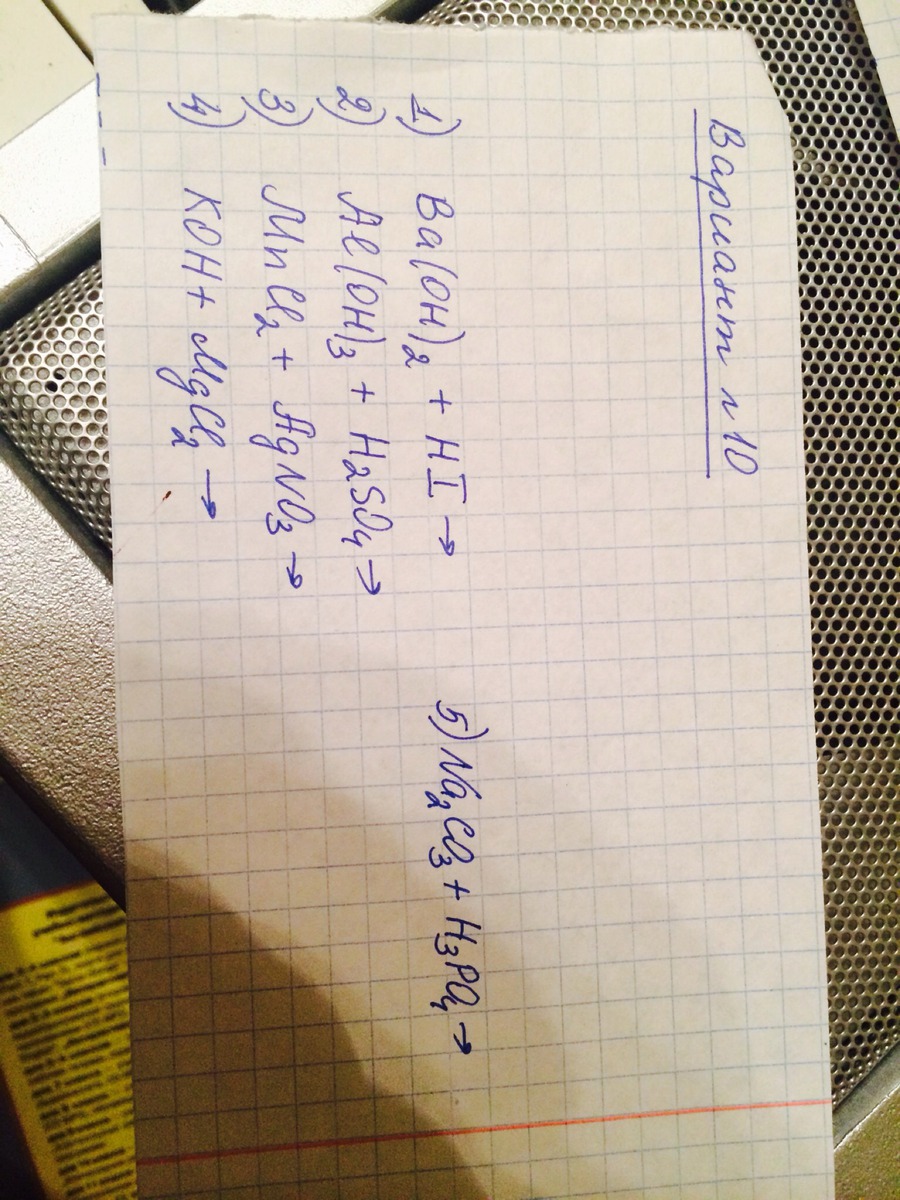 Вариант №10
1) Ba(OH)₂ + HI →
2) Al(OH)₃ + H₂SO₄ →
3) MnCl₂ + AgNO₃ →
4) KOH + MgCl₂ →
5) Na₂CO₃ + H₃PO₄ →